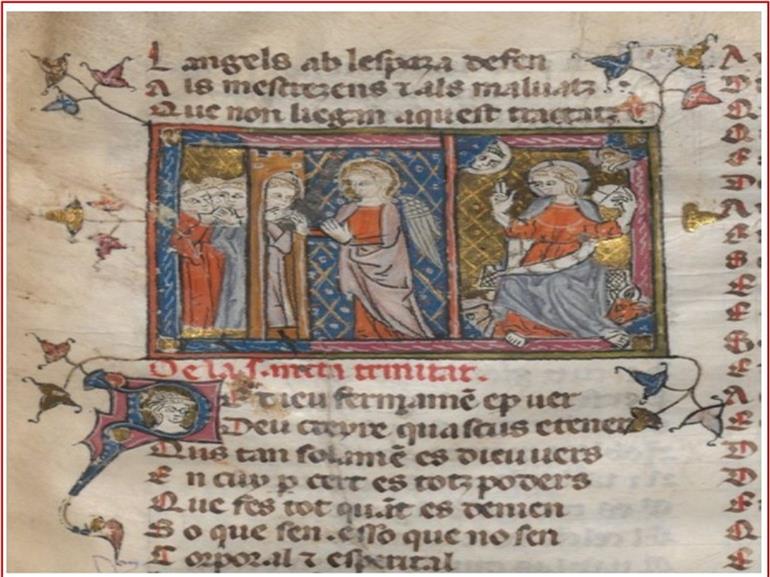 L angels ab lespaza defen
A ls mescrezens ⁊ als maluatz
Que non liegan aquest tractatz.
De la sancta trinitat.
E dieu fermamē ep uer
Deu creyre quascus etener
Qus tan solamē es dieu uers
E n cuy p cert es totz poders
Que fes tot quāt es denien
S o que sen. esso que no sen
C orporal ⁊ esperital